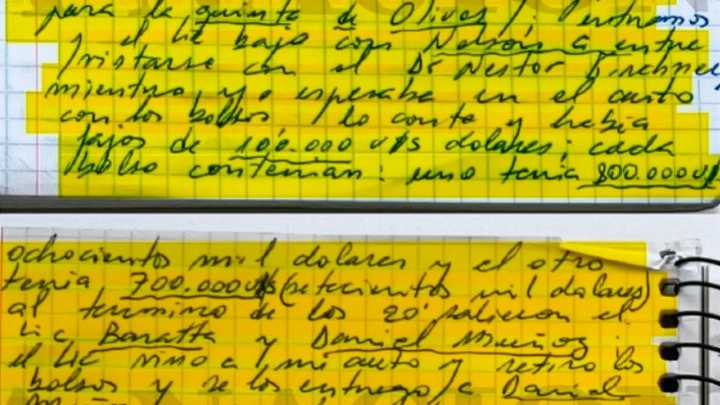 para la quinta de Olivos /. entramos
y el Lic bajo con Nelson a entre
/vistarse con el Dr Nestor Kirchner,
mientras yo esperaba en el auto
con los bolsos / lo conte y habia
fajos de 100.000 u/s dolares; cada
bolso contenian: uno tenia 800.000 u/s
ochocientos mil dolares y el otro
tenia 700.000 u/s (setecientos mil dolares)
al termino de los 20' salieron el
Lic Baratta y Daniel Muñoz;
el Lic vino a mi auto y retiro los
bolsos y se los entrego a Daniel